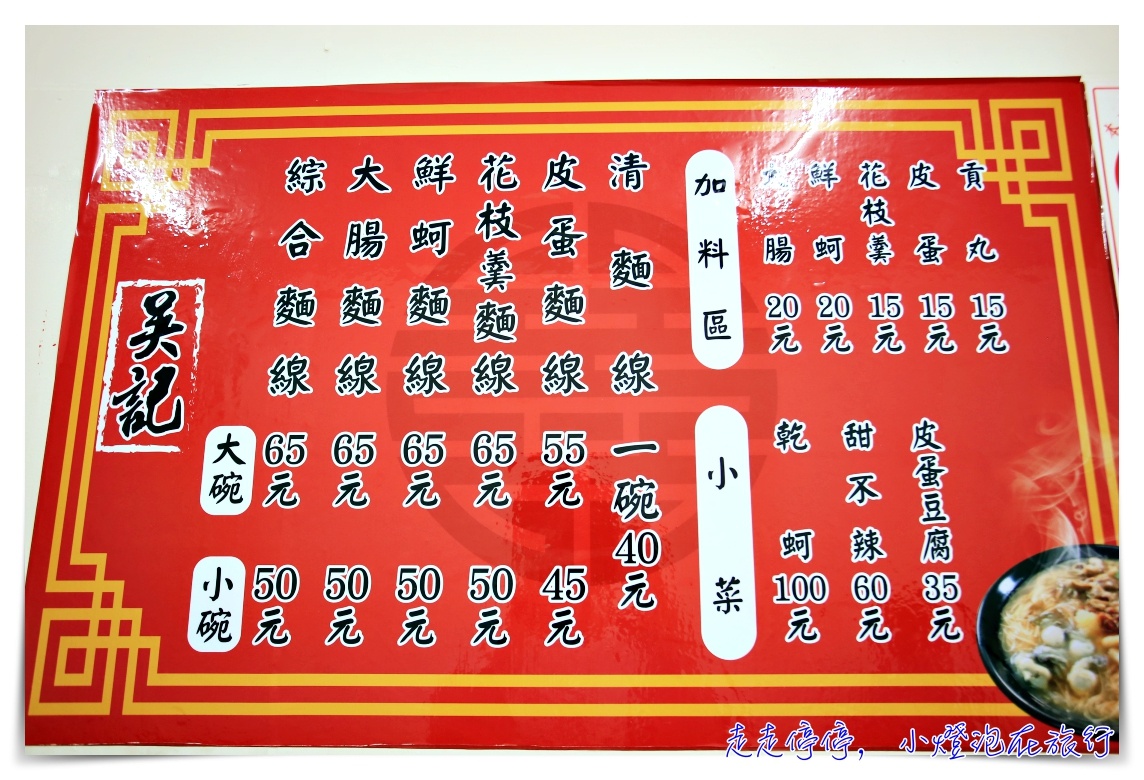 吴記
綜合麵線
大腸麵線
鮮蚵麵線
花枝羹麵線
皮蛋麵線
清麵線
大碗
65元
65元
65元
65元
55元
一碗40元
小碗
50元
50元
50元
50元
45元
加料區
腸 20元
鮮蚵 20元
花枝羹 15元
皮蛋 15元
貢丸 15元
小菜
乾蚵 100元
甜不辣 60元
皮蛋豆腐 35元
走走停停，小燈泡在旅行